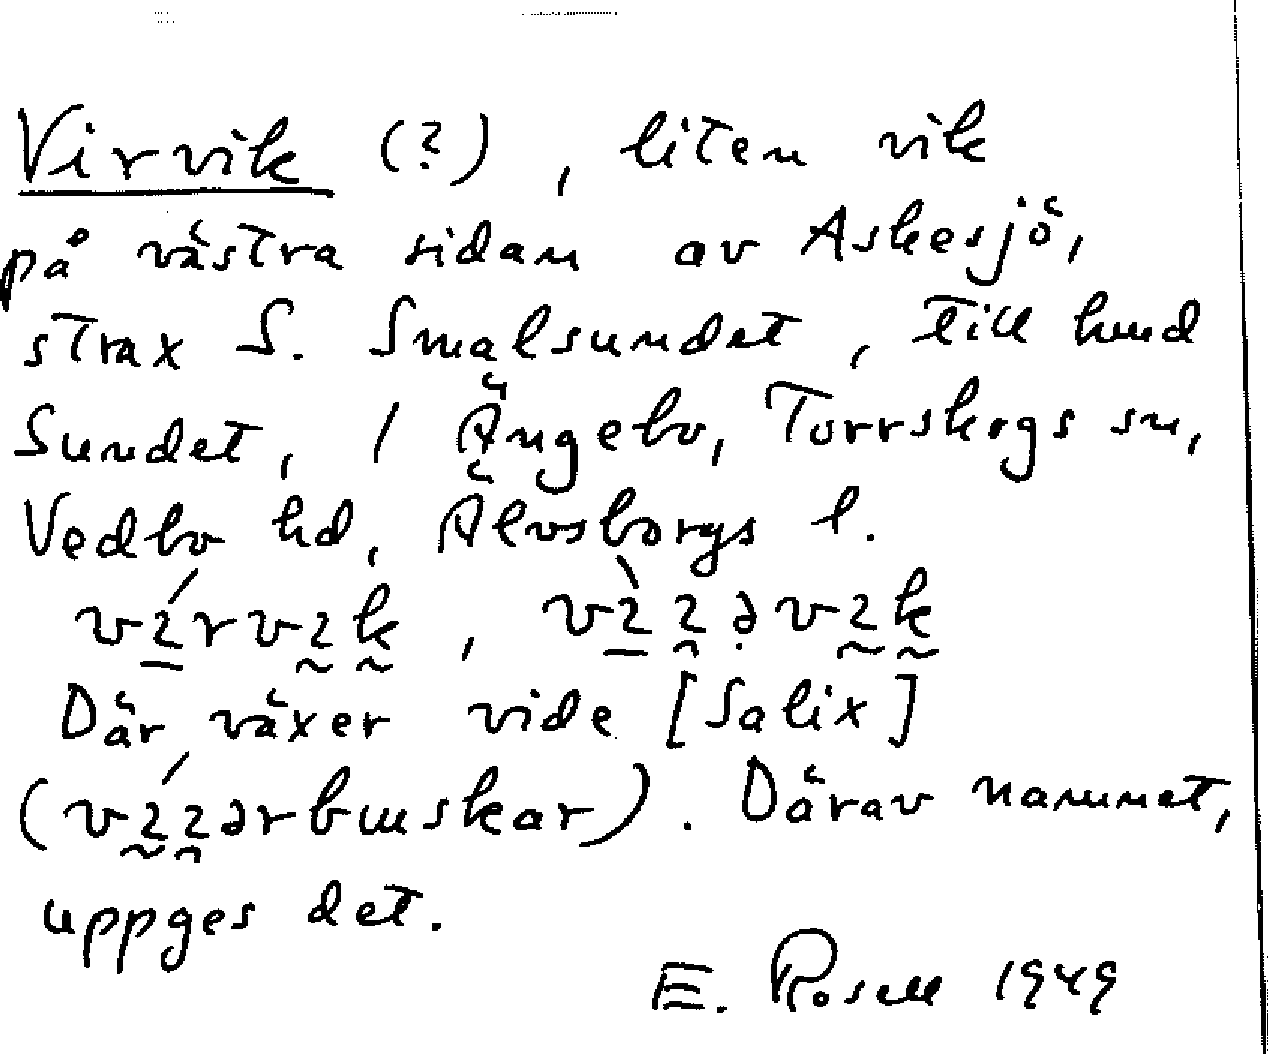 Virvik (?), liten vik
på västra sidan av Askesjö,
strax S. Smalsundet, till hmd
Sundet, i Ängebo, Torrskogs sn,
Vedbo hd, Älvsborgs l.
Där växer vide [Salix]
Därav namnet,
uppges det.
E. Rosell 1949